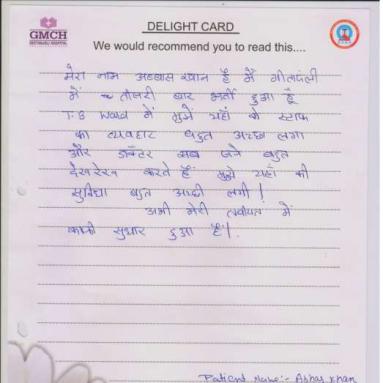 GMCH
GEETANJALI HOSPITAL
DELIGHT CARD
We would recommend you to read this....
मेरा नाम अब्बास खान है मैं गीतांजली
में तीसरी बार भर्ती हुआ हूँ
T.B Ward में मुझे यहाँ के स्टाफ
का व्यवहार बहुत अच्छा लगा
और डॉक्टर सब जने बहुत
देखरेख करते हैं मुझे यहाँ की
सुविधा बहुत अच्छी लगी !
अभी मेरी तबीयत में
काफी सुधार हुआ है।
Patient Name:- Abbas Khan